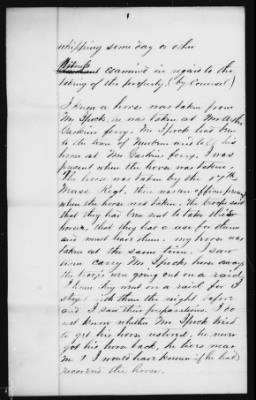 whipping some day or other
Witness examined in regard to the
taking of the property (by counsel)
I knew a horse was taken from
Mr Speck, he was taken at
Parkins ferry. Mr Speck had been
to the town of and left his
horse at Mr Parkins ferry. I was
present when the horse was taken.
The horse was taken by the 17th
Mass Regt. there was an officer present
when the horse was taken. The troops said
that they had been sent to take these
horses, that they had a use for them
and must have them. my horse was
taken at the same time. I saw
him carry Mr Specks horse away
the troops were going out on a raid
I know they went on a raid for I
stayed with them the night before
and I saw their preparations. I do
not know whether Mr Speck tried
to get his horse restored, he never
got his horse back, he lives near
me & I would have known if he had
received the horse.